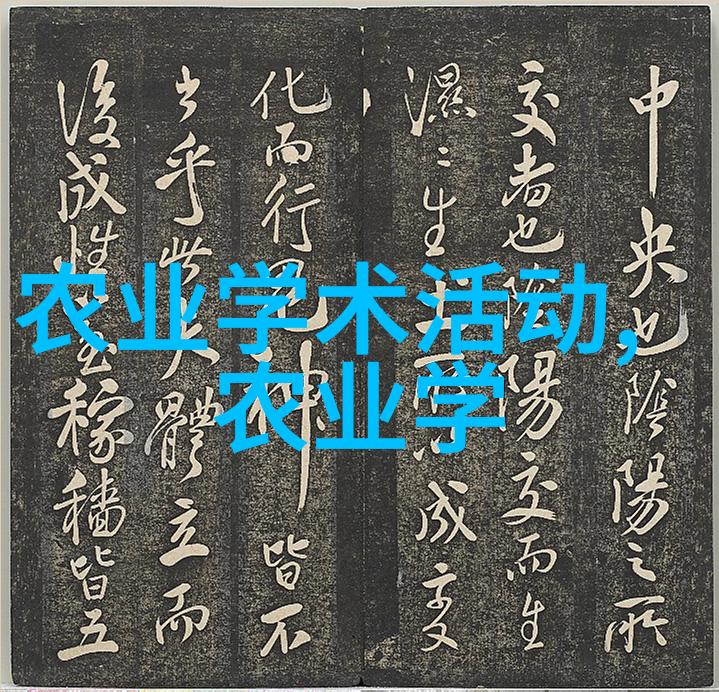 农业学术活动,
农业学
中央也陰陽之所
交者也陰陽交而生
濕〻生土成变
化而行神皆不
出乎此大體立而
後成性至稼穡皆五